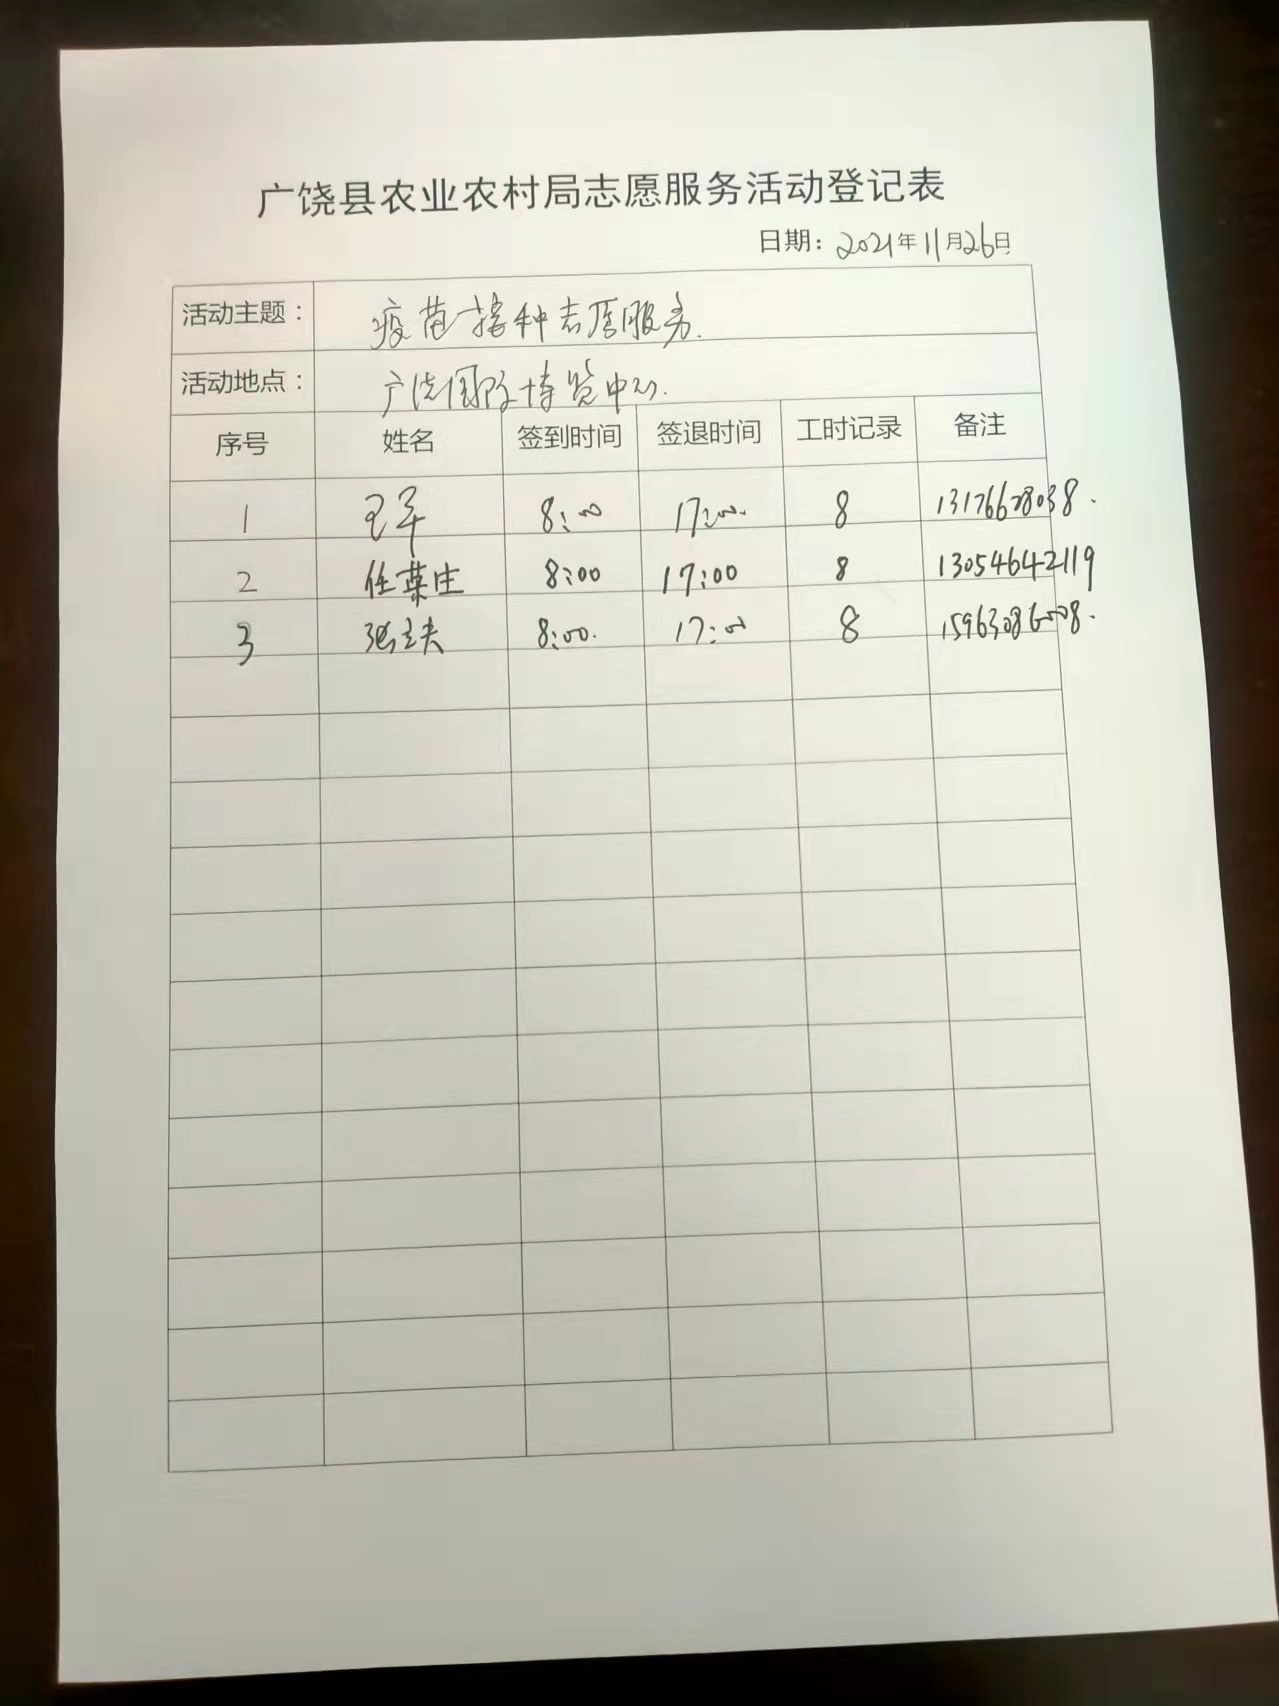 广饶县农业农村局志愿服务活动登记表
日期：2021年11月26日
活动主题： 疫苗接种志愿服务.
活动地点： 广饶国际博览中心.
序号 姓名 签到时间 签退时间 工时记录 备注
1 8:00 17:00. 8
2 任荣庄 8:00 17:00 8 13054642119
3 8:00. 17:00 8